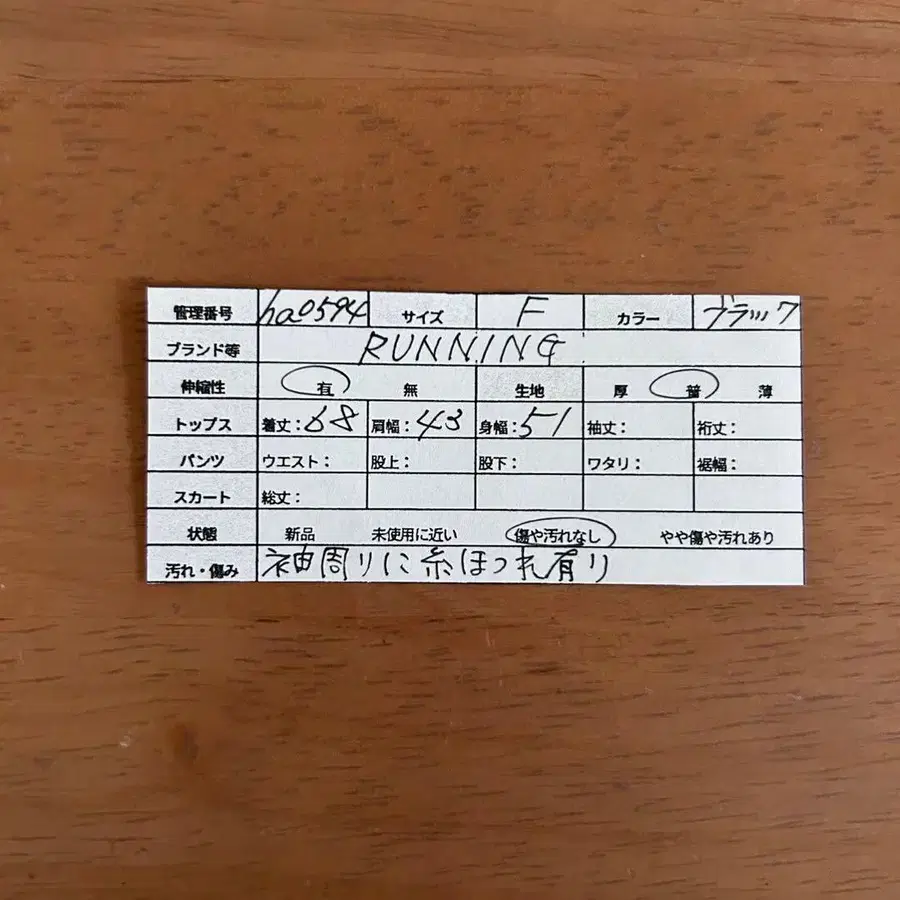 管理番号 ha0594 サイズ F カラー ブラック
ブランド等 RUNNING
伸縮性 有 無 生地 厚 普 薄
トップス 着丈：68 肩幅：43 身幅：51 袖丈： 裄丈：
パンツ ウエスト： 股上： 股下： ワタリ： 裾幅：
スカート 総丈：
状態 新品 未使用に近い 傷や汚れなし やや傷や汚れあり
汚れ・傷み 袖周りに糸ほつれ有り